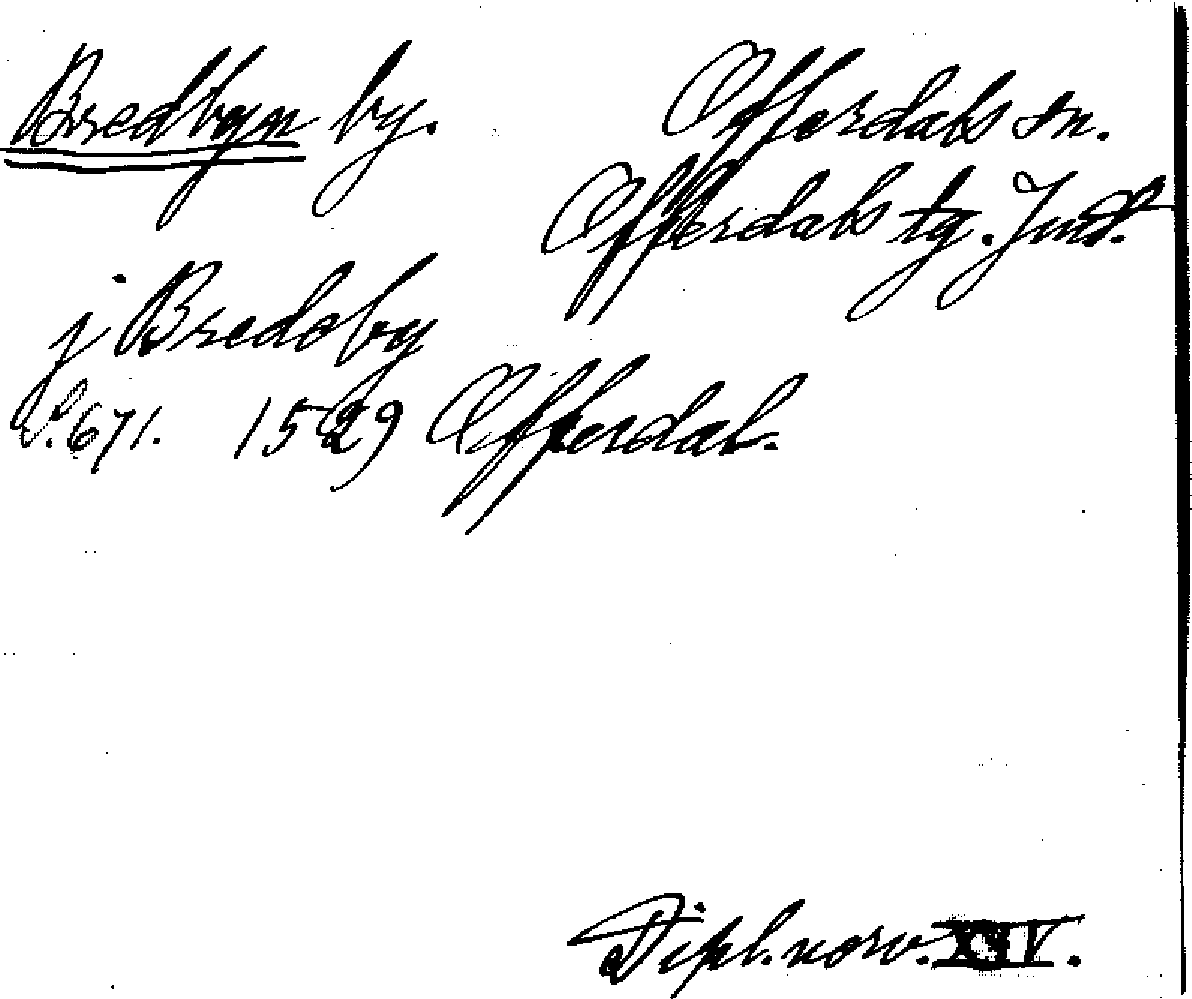 Bredbyn by. Offerdals sn.
Offerdals tg. Jmtl.
j Bredeby
S. 671. 1529 Offerdal.
Dipl. norv. XIV.